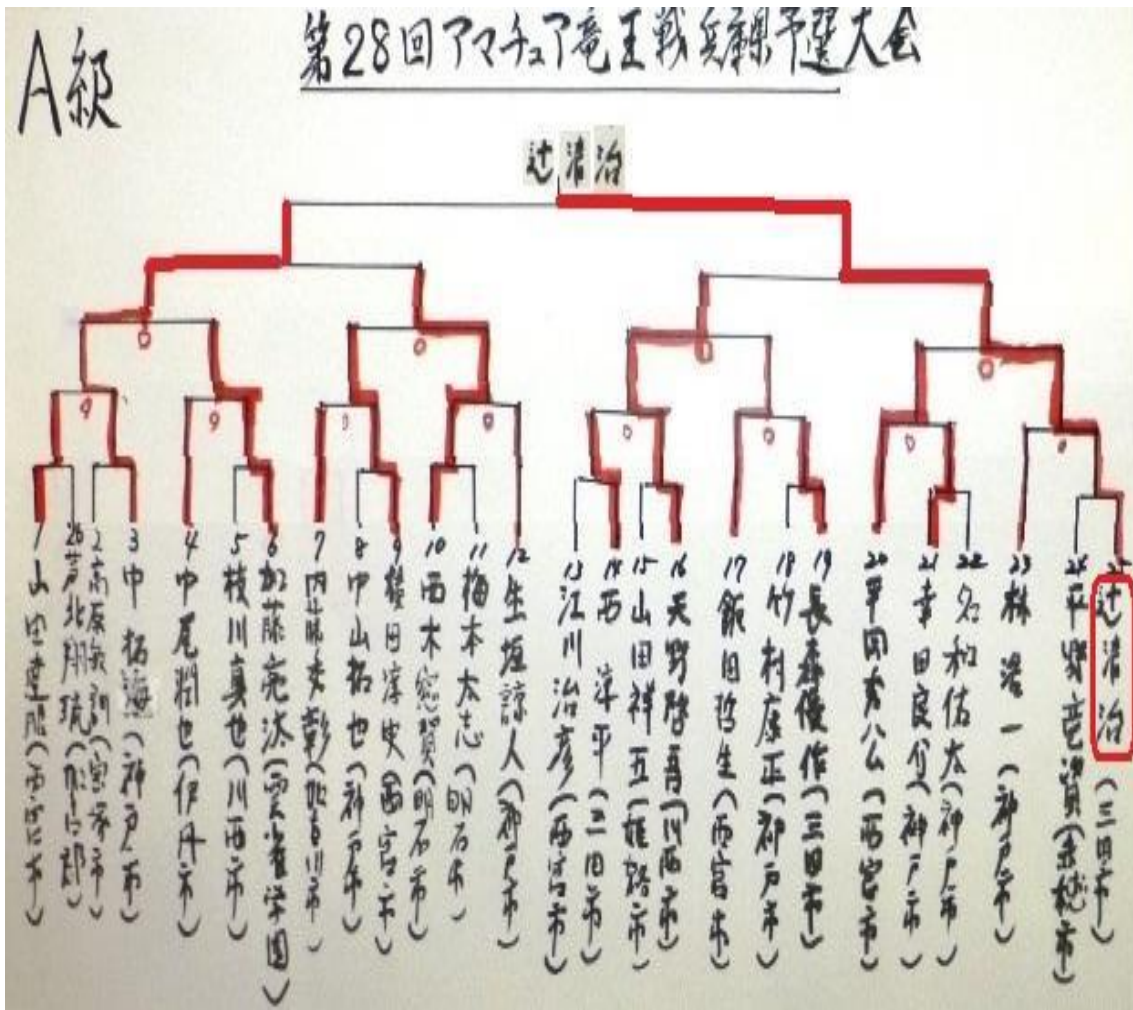 A級
第28回アマチュア竜王戦兵庫県予選大会
辻清治
1 山田達郎(西宮市)
26 芦北翔琉(加古郡)
2 高原敏訓(宝塚市)
3 中 拓海(神戸市)
4 中尾潤也(伊丹市)
5 枝川真也(川西市)
6 加藤亮汰(雲雀学園)
7 (加古川市)
8 中山拓也(神戸市)
9 横田淳史(西宮市)
10 西木宏賀(明石市)
11 梅本太志(明石市)
12 生垣諒人(神戸市)
13 江川治彦(西宮市)
14 西 淳平(三田市)
15 山田祥五(姫路市)
16 天野啓吾(川西市)
17 飯田哲生(西宮市)
18 竹村庫正(神戸市)
19 長森優作(三田市)
20 平岡秀八公(西宮市)
21 幸田良介(神戸市)
22 名和佑太(神戸市)
23 林 浩一(神戸市)
24 平野竜賀
25 辻清治(三田市)